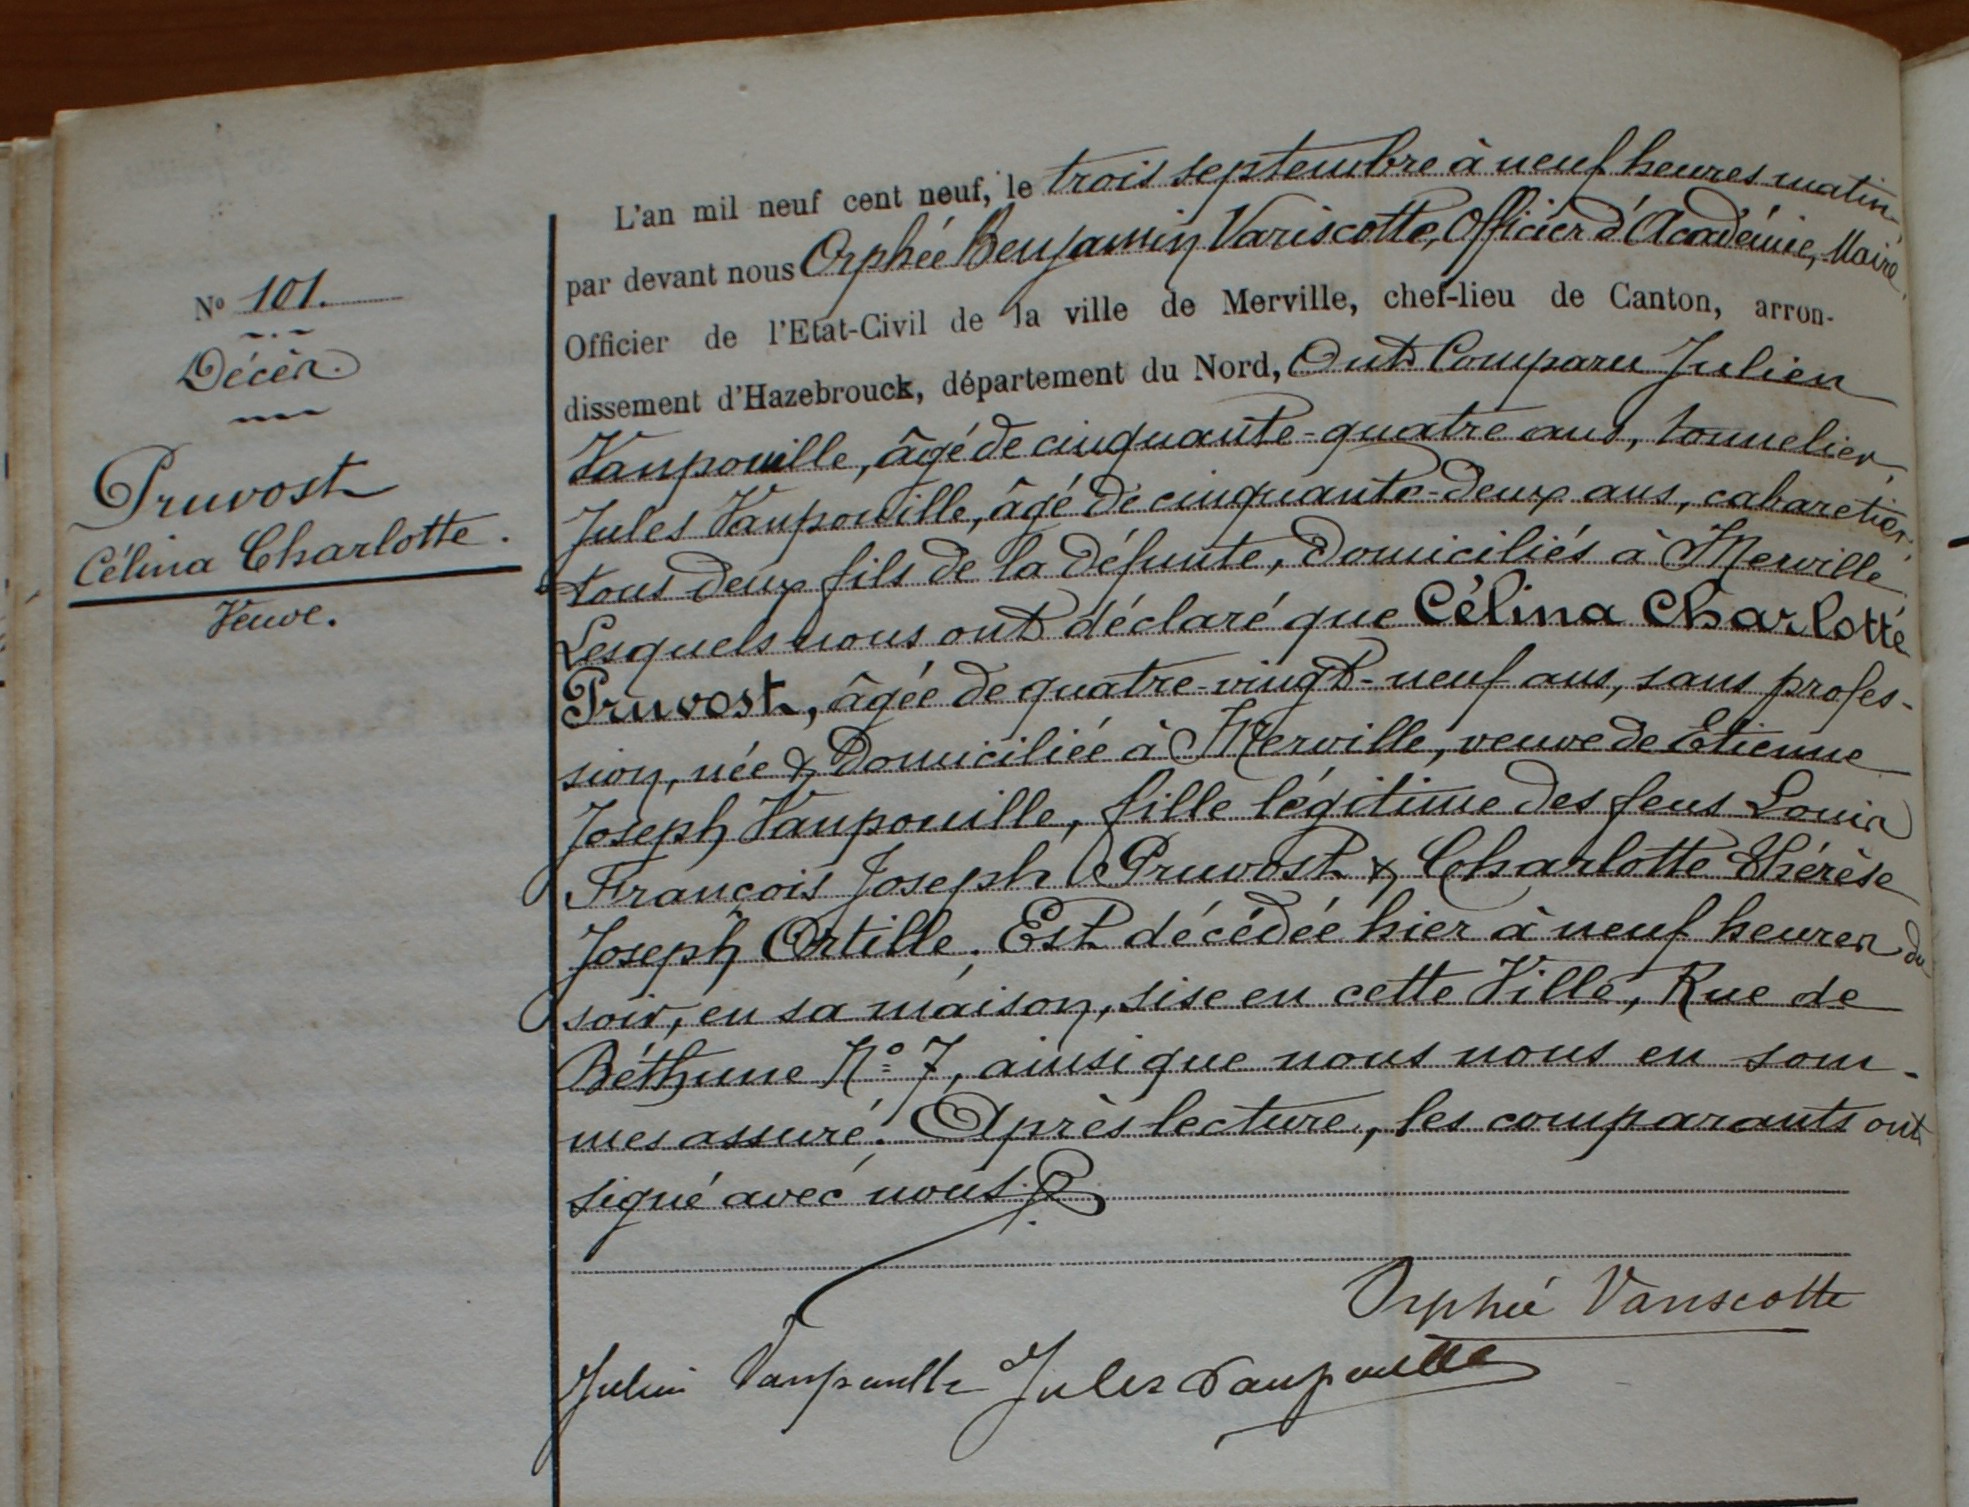 N° 101.
Décès.
Pruvost
Célina Charlotte.
Veuve.
L'an mil neuf cent neuf, le trois septembre à neuf heures matin,
par devant nous Orphée Benjamin Variscotte, Officier d'Académie, Maire,
Officier de l'Etat-Civil de la ville de Merville, chef-lieu de Canton, arron-
dissement d'Hazebrouck, département du Nord, Ont Comparu Julien
Vanpouille, âgé de cinquante-quatre ans, tonnelier,
Jules Vanpouille, âgé de cinquante-deux ans, cabaretier,
tous deux fils de la défunte, domiciliés à Merville
Lesquels nous ont déclaré que Célina Charlotte
Pruvost, âgée de quatre-vingt-neuf ans, sans profes-
sion, née & domiciliée à Merville, veuve de Etienne
Joseph Vanpouille, fille légitime des feus Louis
François Joseph Pruvost & Charlotte Thérèse
Joseph Ortille. Est décédée hier à neuf heures du
soir, en sa maison, sise en cette Ville, Rue de
Béthune N° 7, ainsi que nous nous en som-
mes assuré. Après lecture, les comparants ont
signé avec nous.
Orphée Variscotte
Julien Vanpouille Jules Vanpouille